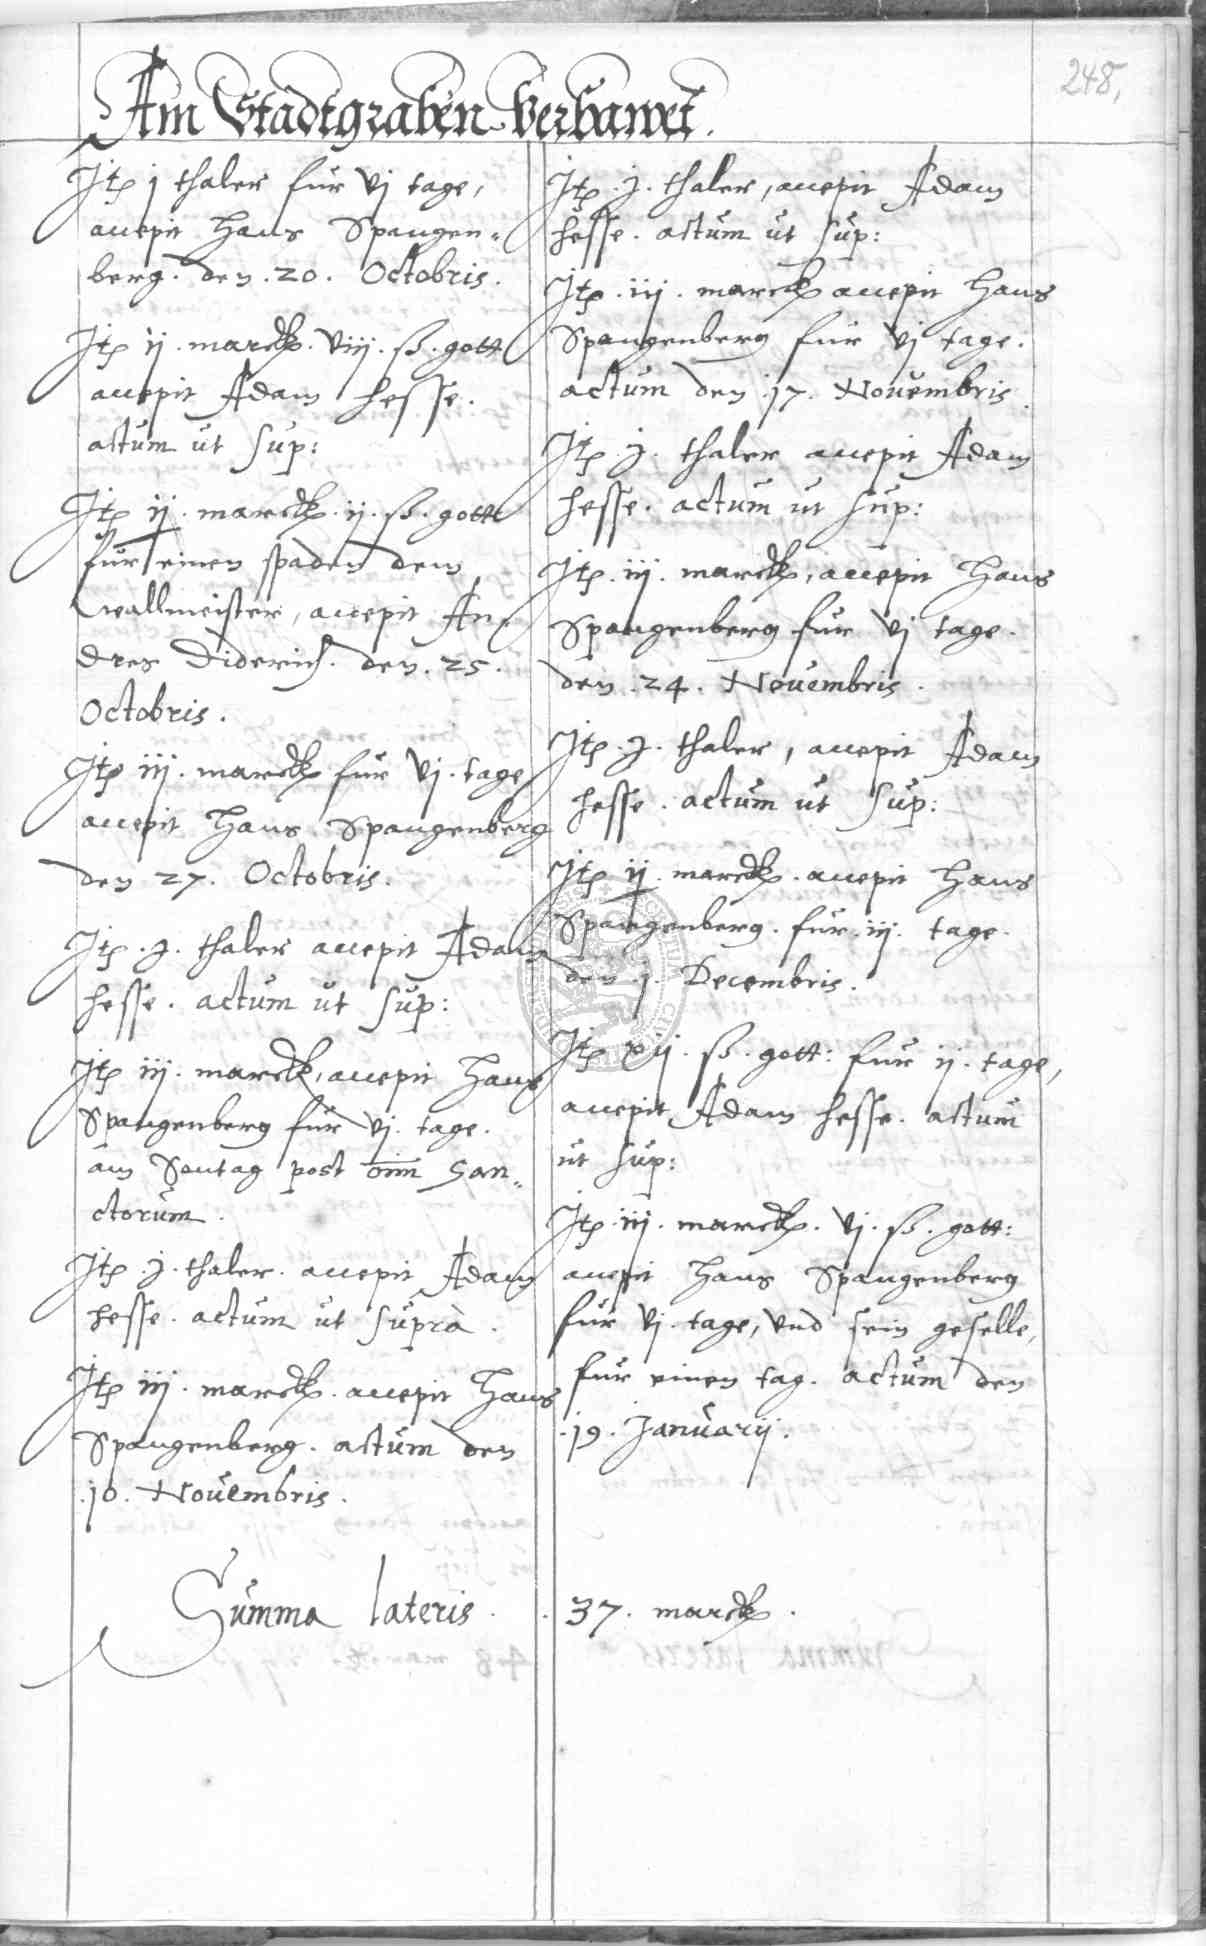 248.
Am Stadtgraben Verbawet.
Itp j thaler fur vj tage,
accepit Hans Spangen-
berg. den .20. Octobris.
Itp ij. marck. viij. ß. gott
accepit Adam Hesse.
actum ut sup:
Itp ij. marck. ij. ß. gott
fur einen spaden dem
wallmeister, accepit An-
dres Diderich. den .25.
Octobris.
Itp iij. marck fur vj. tage
accepit Hans Spangenberg
den 27. Octobris.
Itp .j. thaler accepit Adam
Hesse. actum ut sup:
Itp iij. marck, accepit Hans
Spangenberg fur vj. tage.
am Sontag post oīm San-
ctorum.
Itp .j. thaler. accepit Adam
Hesse. actum ut suprà.
Itp iij. marck. accepit Hans
Spangenberg. actum den
.10. Novembris.
Itp .j. thaler, accepit Adam
Hesse. actum ut sup:
Itp .iij. marck accepit Hans
Spangenberg fur vj tage.
actum den .17. Novembris.
Itp .j. thaler accepit Adam
Hesse. actum ut sup:
Itp .iij. marck, accepit Hans
Spangenberg fur vj tage.
den .24. Novembris.
Itp .j. thaler, accepit Adam
Hesse. actum ut sup:
Itp ij. marck. accepit Hans
Spangenberg. fur .iij. tage.
den .j. Decembris.
Itp xij. ß. gott: fur ij. tage,
accepit Adam Hesse. actum
ut sup:
Itp .iij. marck. vj. ß. gott:
accepit Hans Spangenberg
fur vj. tage, vnd sein geselle,
fur einen tag. actum den
.19. Januarij.
Summa lateris . . 37. marck.